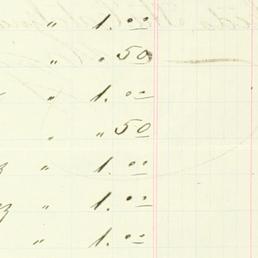 " 1.00
" " 50
" 1.00
" " 50
" 1.00
" 1.00
" 1.00